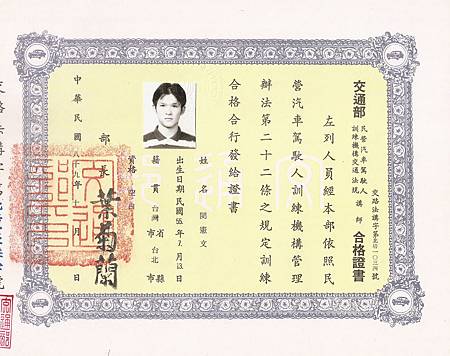 交通部
民營汽車駕駛人
訓練機構交通法規
講師
合格證書
交路法講字第　一〇三四號
左列人員經本部依照民
營汽車駕駛人訓練機構管理
辦法第二十二條之規定訓練
合格合行發給證書
姓名　閔憲文
出生日期民國55年7月13日
籍貫　台灣省　縣
市　台北　市
資格
部長 葉菊蘭
中華民國八十九年十　月　日